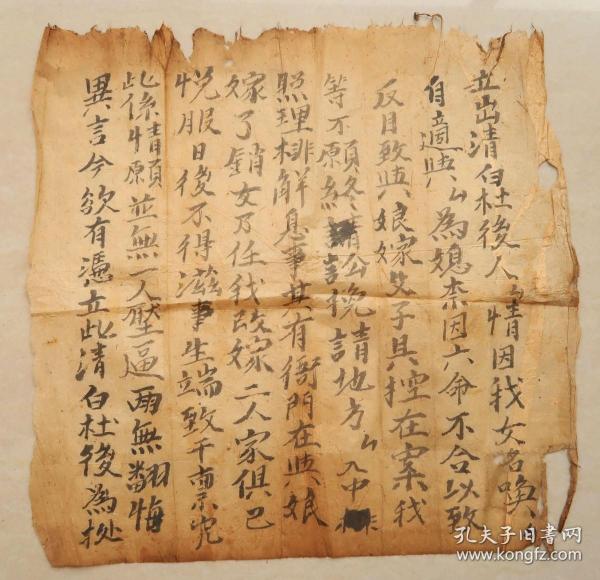 立出清白杜後人〻情因我女名喚
自適与〻為媳柰因六命不合以致
反目致与娘家父子具控在案我
等不願終請公挽請地方〻入中
照理排解息事其有衙門在与娘
嫁了銷女乃任我改嫁二人家俱已
悅服日後不得滋事生端致干究
此係情願並無一人壓逼兩無翻悔
異言今欲有憑立此清白杜後為拠
孔夫子旧书网
www.kongfz.com